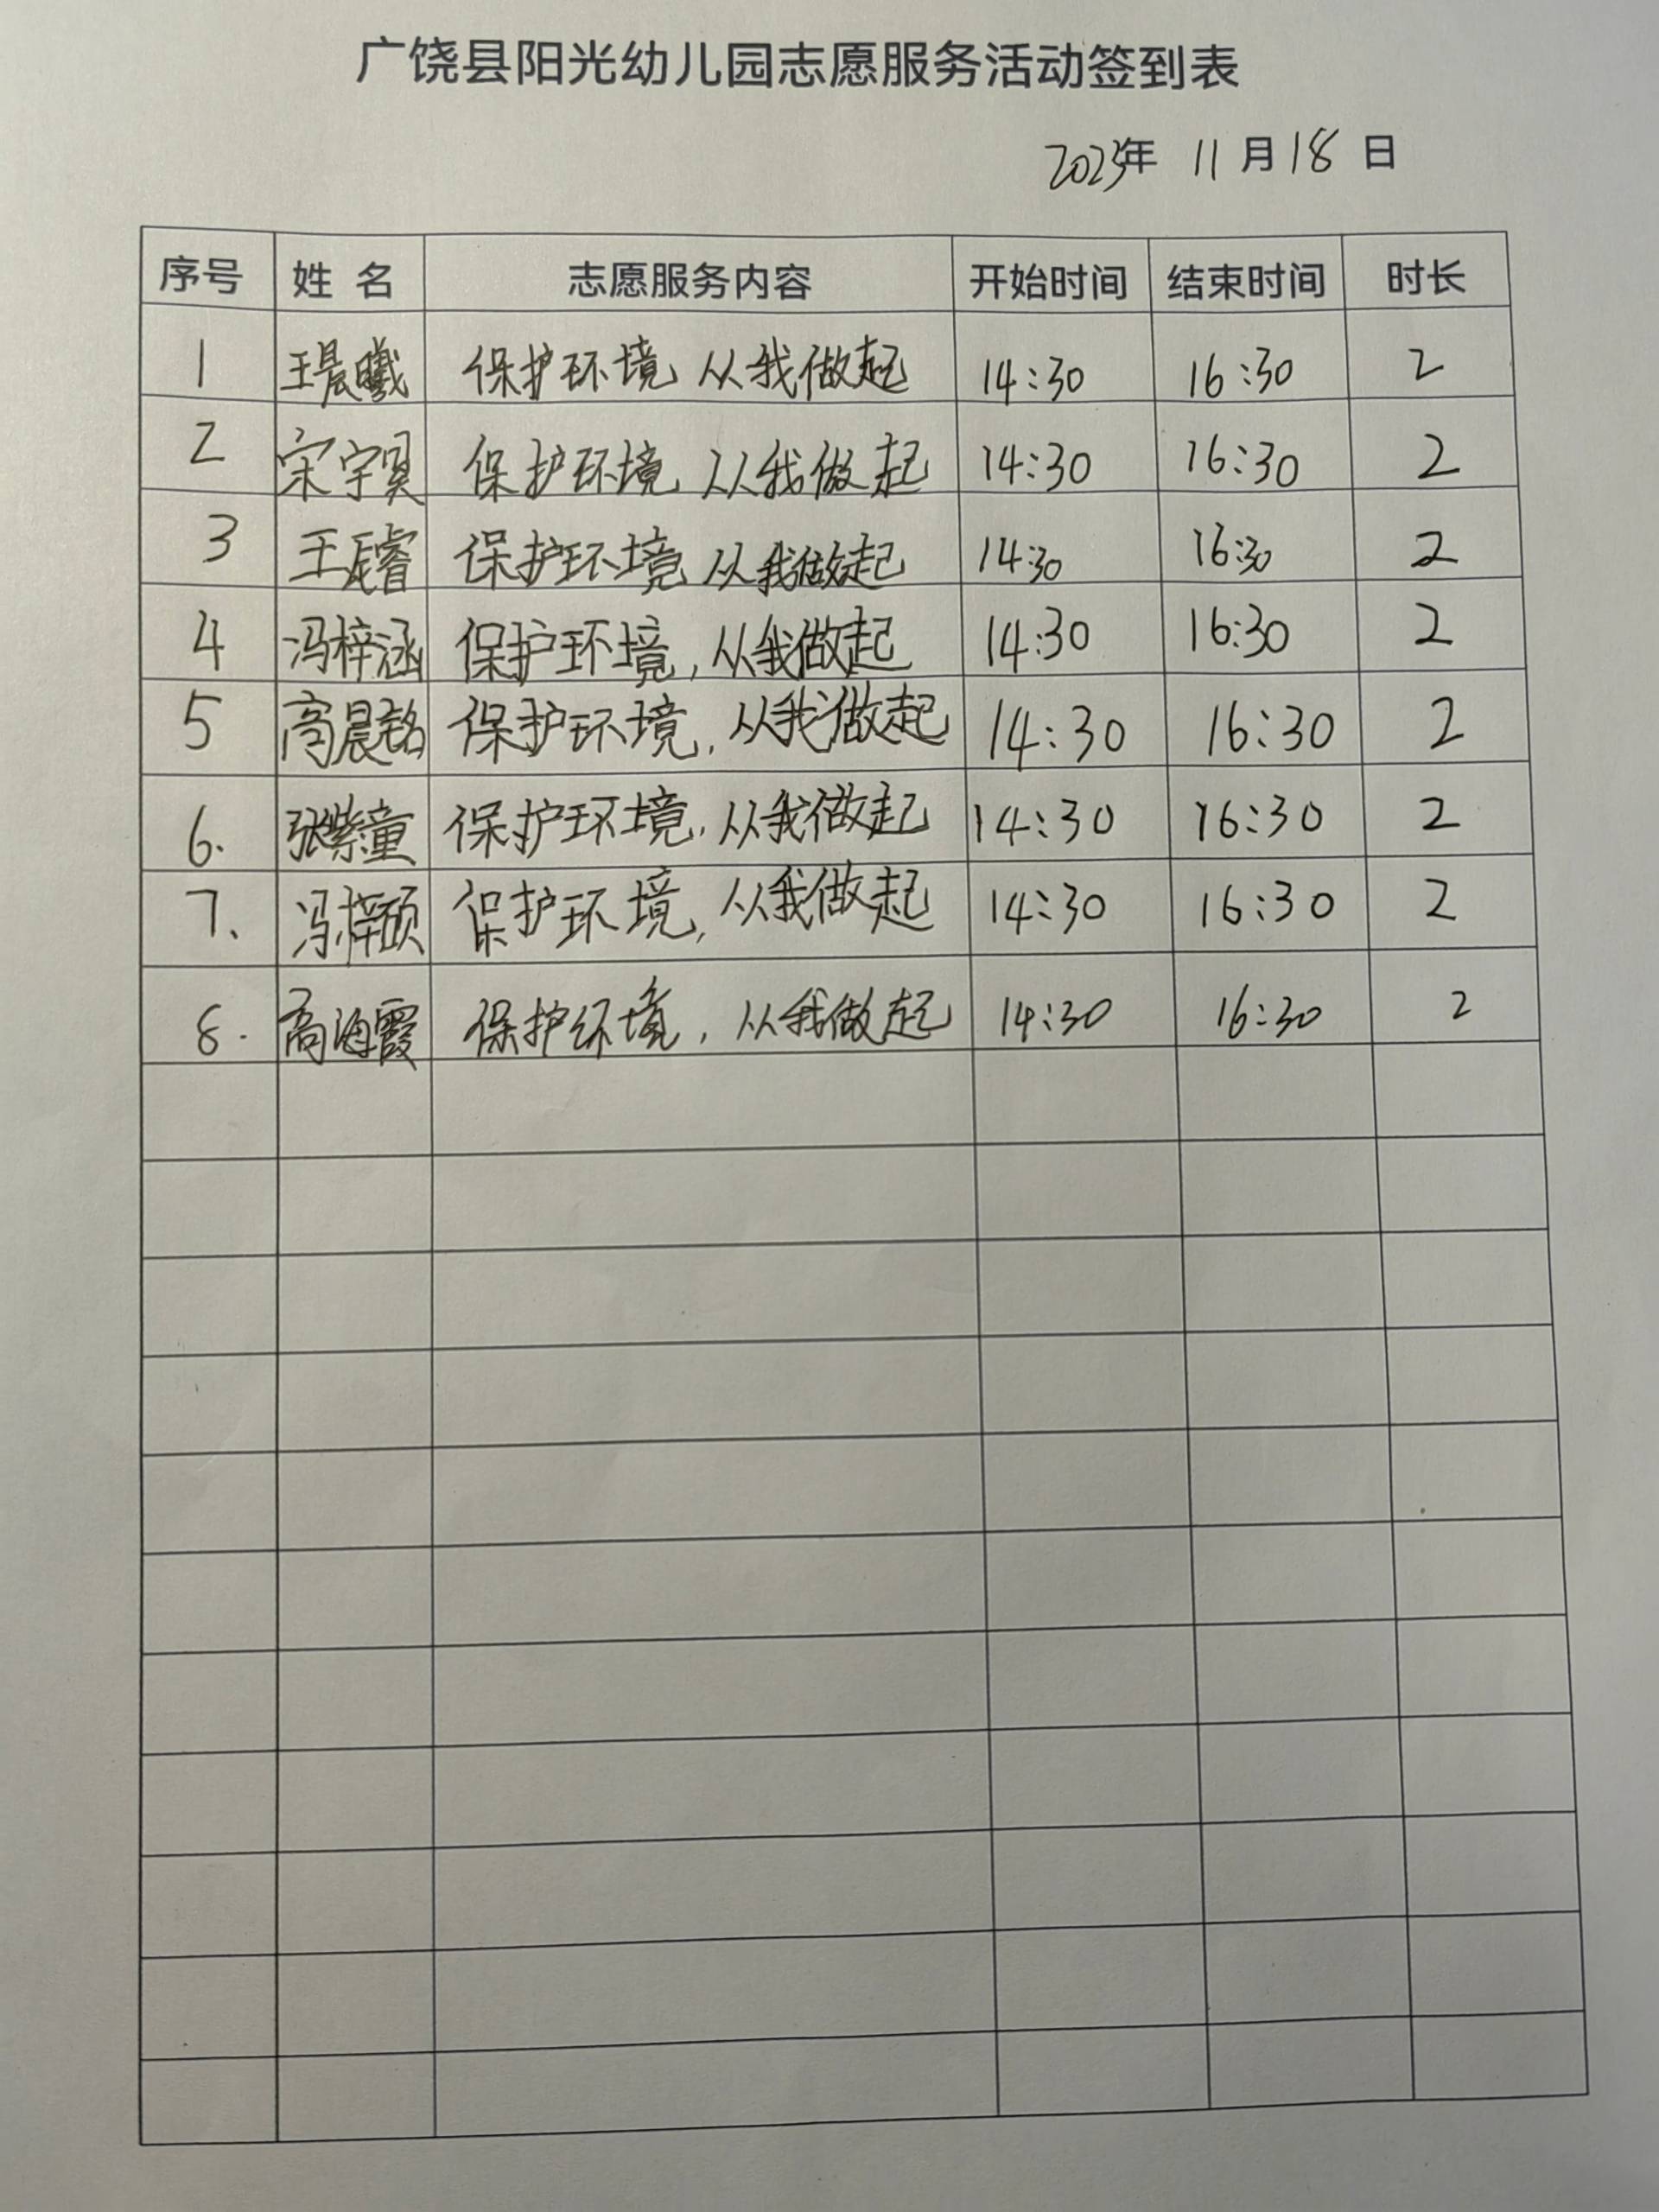 广饶县阳光幼儿园志愿服务活动签到表
2023年 11月18日
序号 姓名 志愿服务内容 开始时间 结束时间 时长
1 王晨曦 保护环境 从我做起 14:30 16:30 2
2 宋宇昊 保护环境，从我做起 14:30 16:30 2
3 王辰睿 保护环境 从我做起 14:30 16:30 2
4 冯梓涵 保护环境，从我做起 14:30 16:30 2
5 高晨铭 保护环境，从我做起 14:30 16:30 2
6. 张紫童 保护环境，从我做起 14:30 16:30 2
7. 冯梓硕 保护环境，从我做起 14:30 16:30 2
8. 高海霞 保护环境，从我做起 14:30 16:30 2